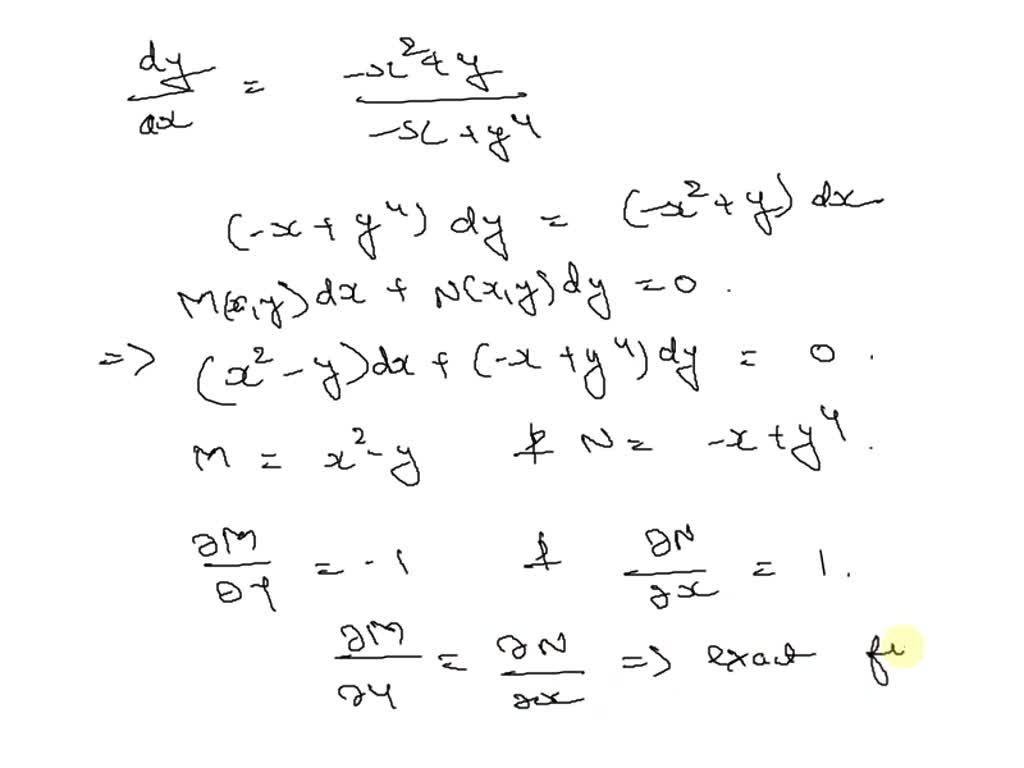 dy/dx = (-x² + y)/(-x + y⁴)
(-x + y⁴) dy = (-x² + y) dx
M(x,y) dx + N(x,y) dy = 0 .
=> (x² - y) dx + (-x + y⁴) dy = 0 .
M = x² - y & N = -x + y⁴ .
∂M/∂y = -1 & ∂N/∂x = 1 .
∂M/∂y = ∂N/∂x => exact